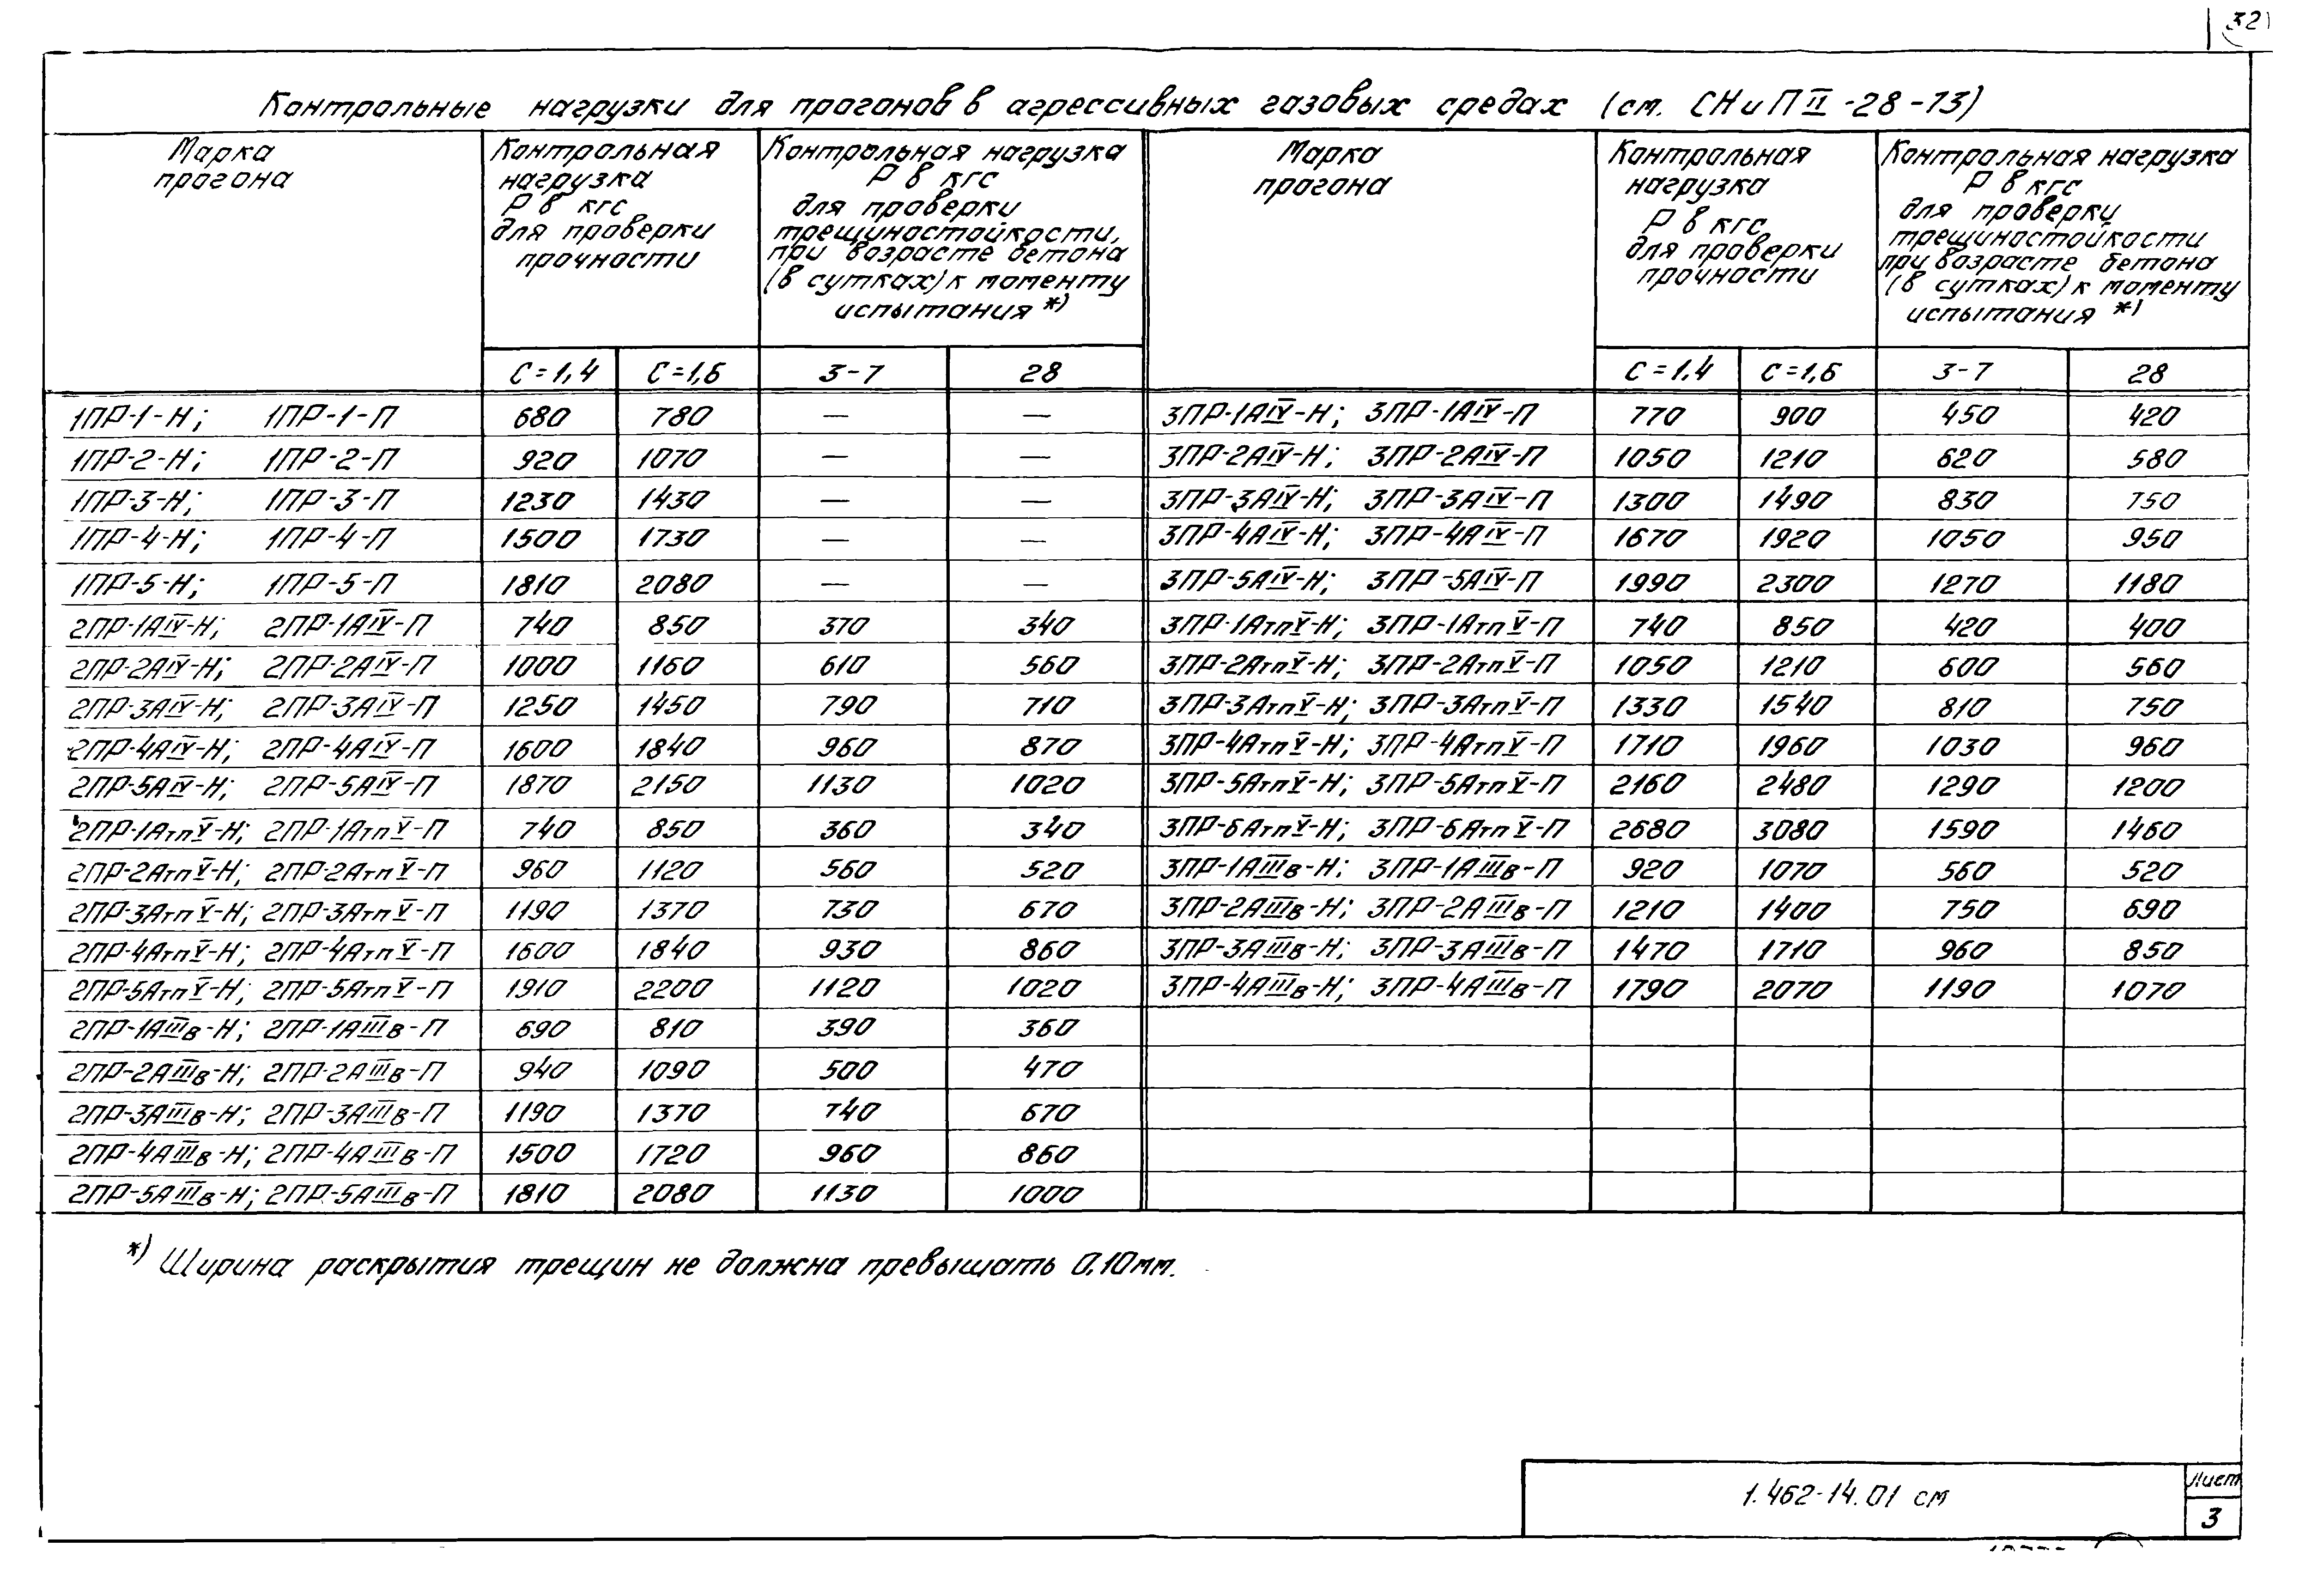 32
Контрольные нагрузки для прогонов в агрессивных газовых средах (см. СНиП II-28-73)
Марка прогона
Контрольная нагрузка Р в кгс для проверки прочности
Контрольная нагрузка Р в кгс для проверки трещиностойкости, при возрасте бетона (в сутках) к моменту испытания *)
Марка прогона
Контрольная нагрузка Р в кгс для проверки прочности
Контрольная нагрузка Р в кгс для проверки трещиностойкости при возрасте бетона (в сутках) к моменту испытания *)
С=1,4 С=1,6 3-7 28 С=1,4 С=1,6 3-7 28
1ПР-1-Н; 1ПР-1-П 680 780 — — 3ПР-1АIV-Н; 3ПР-1АIV-П 770 900 450 420
1ПР-2-Н; 1ПР-2-П 920 1070 — — 3ПР-2АIV-Н; 3ПР-2АIV-П 1050 1210 620 580
1ПР-3-Н; 1ПР-3-П 1230 1430 — — 3ПР-3АIV-Н; 3ПР-3АIV-П 1300 1490 830 750
1ПР-4-Н; 1ПР-4-П 1500 1730 — — 3ПР-4АIV-Н; 3ПР-4АIV-П 1670 1920 1050 950
1ПР-5-Н; 1ПР-5-П 1810 2080 — — 3ПР-5АIV-Н; 3ПР-5АIV-П 1990 2300 1270 1180
2ПР-1АIV-Н; 2ПР-1АIV-П 740 850 370 340 3ПР-1АтпV-Н; 3ПР-1АтпV-П 740 850 420 400
2ПР-2АIV-Н; 2ПР-2АIV-П 1000 1160 610 560 3ПР-2АтпV-Н; 3ПР-2АтпV-П 1050 1210 600 560
2ПР-3АIV-Н; 2ПР-3АIV-П 1250 1450 790 710 3ПР-3АтпV-Н; 3ПР-3АтпV-П 1330 1540 810 750
2ПР-4АIV-Н; 2ПР-4АIV-П 1600 1840 960 870 3ПР-4АтпV-Н; 3ПР-4АтпV-П 1710 1960 1030 960
2ПР-5АIV-Н; 2ПР-5АIV-П 1870 2150 1130 1020 3ПР-5АтпV-Н; 3ПР-5АтпV-П 2160 2480 1290 1200
2ПР-1АтпV-Н; 2ПР-1АтпV-П 740 850 360 340 3ПР-6АтпV-Н; 3ПР-6АтпV-П 2680 3080 1590 1460
2ПР-2АтпV-Н; 2ПР-2АтпV-П 960 1120 560 520 3ПР-1АIIIв-Н; 3ПР-1АIIIв-П 920 1070 560 520
2ПР-3АтпV-Н; 2ПР-3АтпV-П 1190 1370 730 670 3ПР-2АIIIв-Н; 3ПР-2АIIIв-П 1210 1400 750 690
2ПР-4АтпV-Н; 2ПР-4АтпV-П 1600 1840 930 860 3ПР-3АIIIв-Н; 3ПР-3АIIIв-П 1470 1710 960 850
2ПР-5АтпV-Н; 2ПР-5АтпV-П 1910 2200 1120 1020 3ПР-4АIIIв-Н; 3ПР-4АIIIв-П 1790 2070 1190 1070
2ПР-1АIIIв-Н; 2ПР-1АIIIв-П 690 810 390 360
2ПР-2АIIIв-Н; 2ПР-2АIIIв-П 940 1090 500 470
2ПР-3АIIIв-Н; 2ПР-3АIIIв-П 1190 1370 740 670
2ПР-4АIIIв-Н; 2ПР-4АIIIв-П 1500 1720 960 860
2ПР-5АIIIв-Н; 2ПР-5АIIIв-П 1810 2080 1130 1000
*) Ширина раскрытия трещин не должна превышать 0,10мм.
1.462-14.01 см
Лист
3